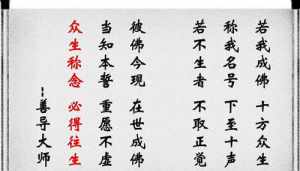 若我成佛 十方众生
称我名号 下至十声
若不生者 不取正觉
彼佛今现 在世成佛
当知本誓 重愿不虚
众生称念 必得往生
--善导大师